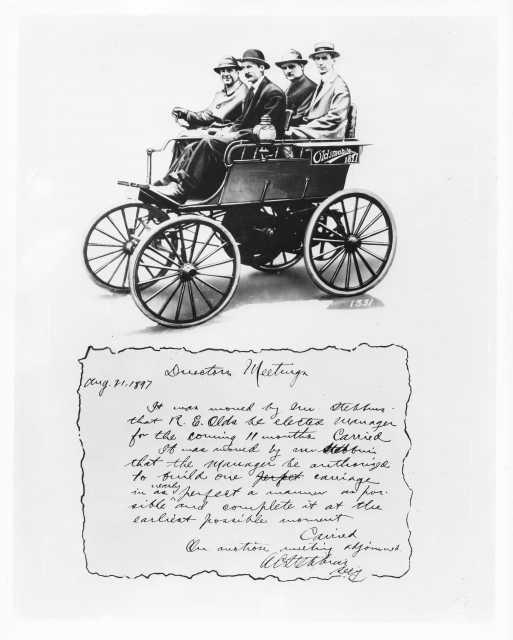 Oldsmobile
1897
1331
Directors Meetings
Aug. 21, 1897
It was moved by Mr Stebbins
that R. E. Olds be elected Manager
for the coming 11 months Carried
It was moved by Mr Stebbins
that the Manager be authorized
to build one perfect carriage
nearly
in as perfect a manner as pos-
sible and complete it at the
earliest possible moment
Carried
On motion meeting adjourned
Stebbins
Secy